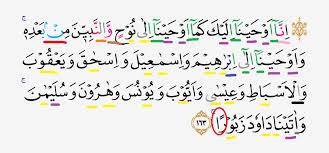 اِنَّآ اَوْحَيْنَآ اِلَيْكَ كَمَآ اَوْحَيْنَآ اِلٰى نُوْحٍ وَّالنَّبِيّٖنَ مِنْۢ بَعْدِهٖۚ
وَاَوْحَيْنَآ اِلٰٓى اِبْرٰهِيْمَ وَاِسْمٰعِيْلَ وَاِسْحٰقَ وَيَعْقُوْبَ
وَالْاَسْبَاطِ وَعِيْسٰى وَاَيُّوْبَ وَيُوْنُسَ وَهٰرُوْنَ وَسُلَيْمٰنَۚ
وَاٰتَيْنَا دَاوٗدَ زَبُوْرًا ١٦٣